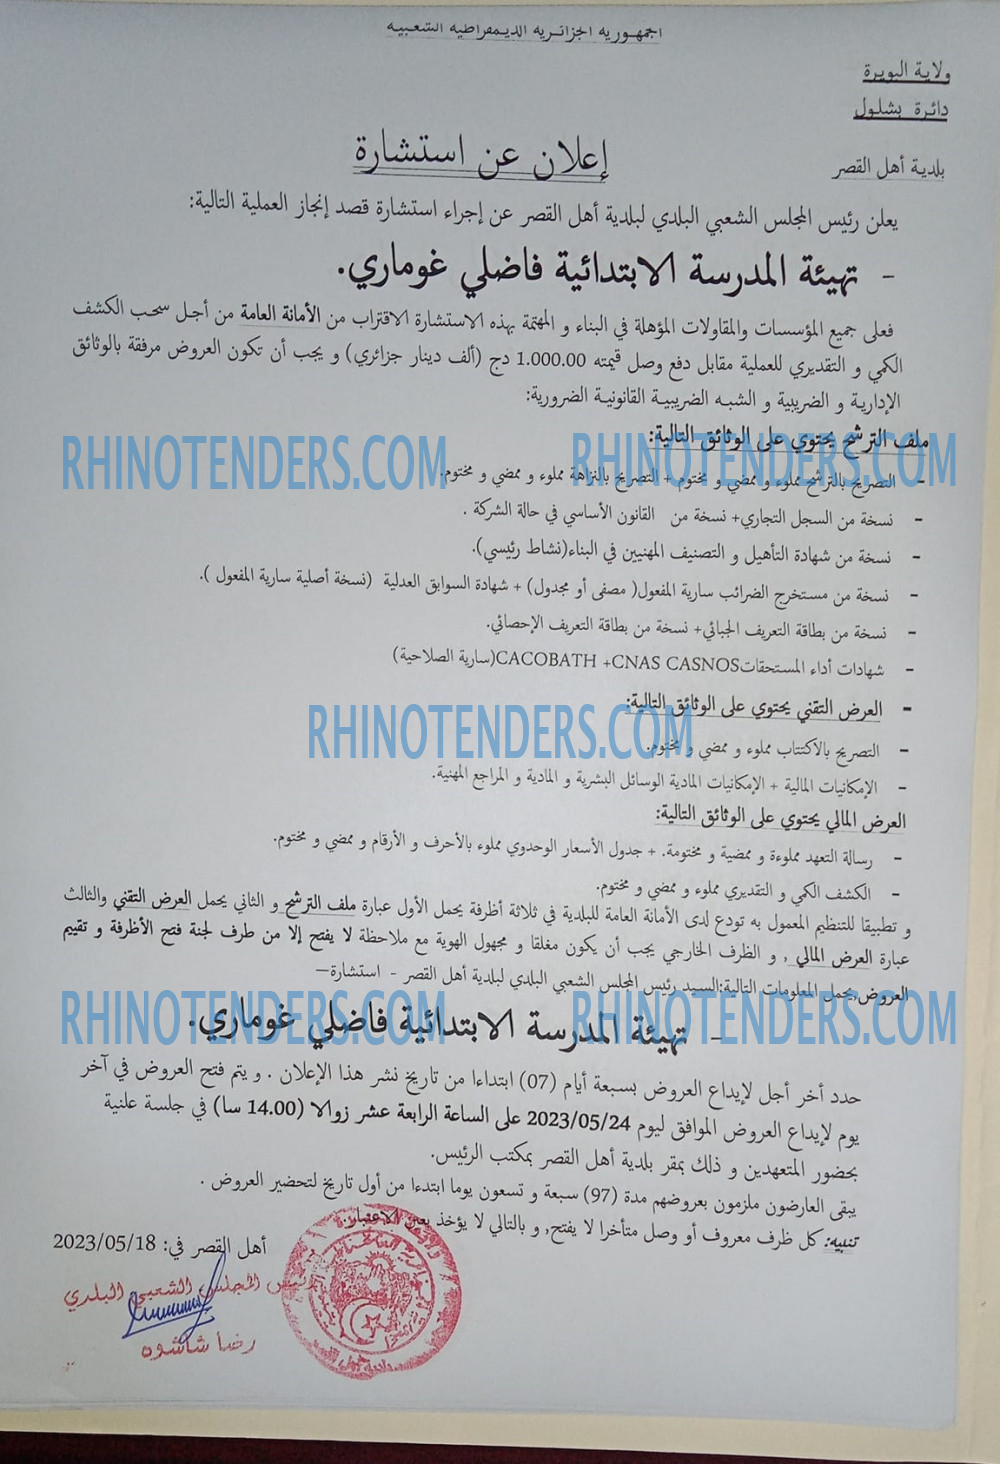 الجمهورية الجزائرية الديمقراطية الشعبية
ولاية البويرة
دائرة بشلول
بلدية أهل القصر
إعلان عن استشارة
يعلن رئيس المجلس الشعبي البلدي لبلدية أهل القصر عن إجراء استشارة قصد إنجاز العملية التالية:
- تهيئة المدرسة الابتدائية فاضلي غوماري.
فعلى جميع المؤسسات والمقاولات المؤهلة في البناء و المهتمة بهذه الاستشارة الاقتراب من الأمانة العامة من أجل سحب الكشف
الكمي و التقديري للعملية مقابل دفع وصل قيمته 1.000.00 دج (ألف دينار جزائري) و يجب أن تكون العروض مرفقة بالوثائق
الإدارية و الضريبية و الشبه الضريبية القانونية الضرورية:
ملف الترشح يحتوي على الوثائق التالية:
RHINOTENDERS.COM RHINOTENDERS.COM
- التصريح بالترشح مملوء و ممضي و مختوم + التصريح بالنزاهة مملوء و ممضي و مختوم.
- نسخة من السجل التجاري+ نسخة من القانون الأساسي في حالة الشركة .
- نسخة من شهادة التأهيل و التصنيف المهنيين في البناء(نشاط رئيسي).
- نسخة من مستخرج الضرائب سارية المفعول( مصفى أو مجدول) + شهادة السوابق العدلية (نسخة أصلية سارية المفعول ).
- نسخة من بطاقة التعريف الجبائي+ نسخة من بطاقة التعريف الإحصائي.
- شهادات أداء المستحقات CACOBATH +CNAS CASNOS(سارية الصلاحية)
- العرض التقني يحتوي على الوثائق التالية:
RHINOTENDERS.COM
- التصريح بالاكتتاب مملوء و ممضي و مختوم.
- الإمكانيات المالية + الإمكانيات المادية الوسائل البشرية و المادية و المراجع المهنية.
العرض المالي يحتوي على الوثائق التالية:
- رسالة التعهد مملوءة و ممضية و مختومة. + جدول الأسعار الوحدوي مملوء بالأحرف و الأرقام و ممضي و مختوم.
- الكشف الكمي و التقديري مملوء و ممضي و مختوم.
و تطبيقا للتنظيم المعمول به تودع لدى الأمانة العامة للبلدية في ثلاثة أظرفة يحمل الأول عبارة ملف الترشح و الثاني يحمل العرض التقني والثالث
عبارة العرض المالي , و الظرف الخارجي يجب أن يكون مغلقا و مجهول الهوية مع ملاحظة لا يفتح إلا من طرف لجنة فتح الأظرفة و تقييم
العروض,يحمل المعلومات التالية:السيد رئيس المجلس الشعبي البلدي لبلدية أهل القصر - استشارة–
RHINOTENDERS.COM RHINOTENDERS.COM
- تهيئة المدرسة الابتدائية فاضلي غوماري.
حدد أخر أجل لإيداع العروض بسبعة أيام (07) ابتداءا من تاريخ نشر هذا الإعلان . و يتم فتح العروض في آخر
يوم لإيداع العروض الموافق ليوم 2023/05/24 على الساعة الرابعة عشر زوالا (14.00 سا) في جلسة علنية
بحضور المتعهدين و ذلك بمقر بلدية أهل القصر بمكتب الرئيس.
يبقى العارضون ملزمون بعروضهم مدة (97) سبعة و تسعون يوما ابتدءا من أول تاريخ لتحضير العروض .
تنبيه: كل ظرف معروف أو وصل متأخرا لا يفتح, و بالتالي لا يؤخذ بعين الاعتبار.
أهل القصر في: 2023/05/18
رئيس المجلس الشعبي البلدي
رضا شاشوه